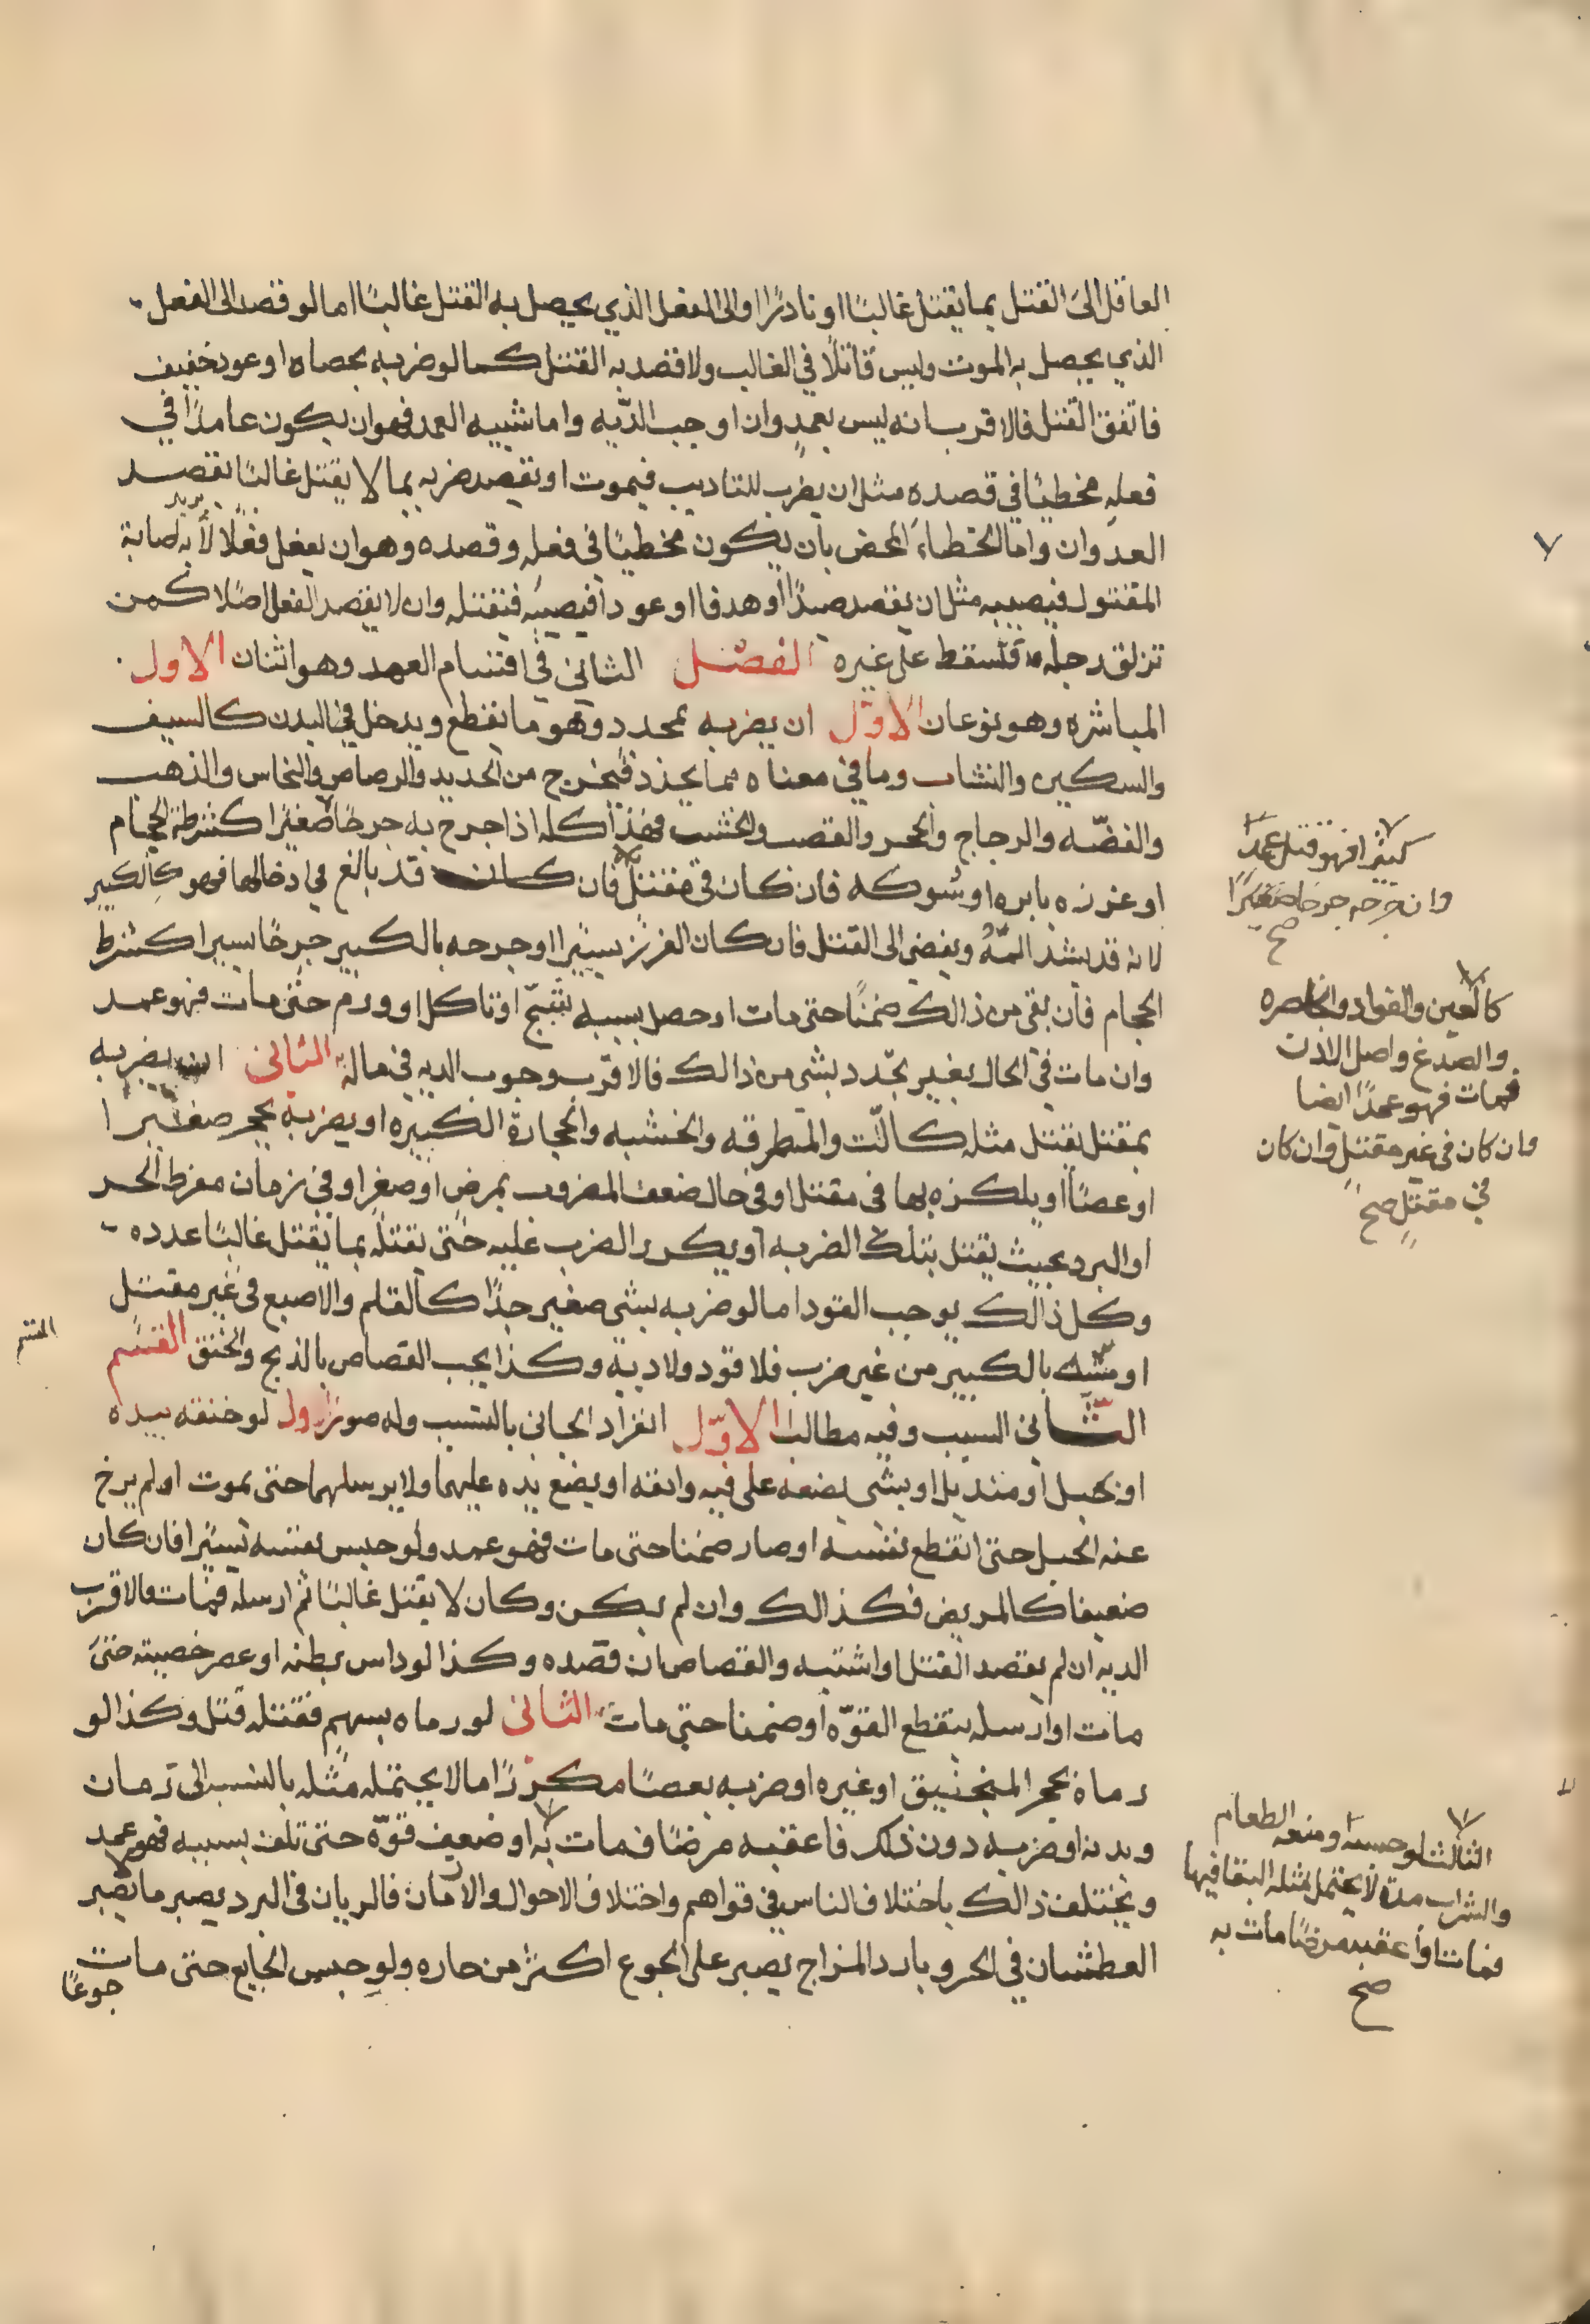 العاقل الى القتل بما يقتل غالبًا او نادرًا او الى الفعل الذي يحصل به القتل غالبًا اما لو قصد الى الفعل
الذي يحصل به الموت وليس قاتلًا في الغالب ولا قصد به القتل كما لو ضربه بحصاه او عود خفيف
فاتفق القتل فالاقرب انه ليس بعمدٍ وان اوجب الدّيه واما شبيه العمد فهو ان يكون عامدًا في
فعله مخطيًا في قصده مثل ان يضرب للتاديب فيموت او يقصد ضربه بما لا يقتل غالبًا بقصد
العدوان واما الخطاء المحض بان يكون مخطيًا في فعله وقصده وهو ان يفعل فعلًا لا يريد به اصابة
المقتول فيصيبه مثل ان يقصد صيدًا او هدفا او عودا فيصيبه فتقتله وان لا يقصد الفعل اصلا كمن
تزلق رجله فتسقط على غيره الفصل الثاني في اقسام العمد وهو اثنان الاول
المباشره وهو نوعان الاوّل ان يضربه بمحدد وهو ما يقطع ويدخل في البدن كالسيف
والسكين والنشاب وما في معناه مما يحدد فيخرج من الحديد والرصاص والنحاس والذهب
والفضّه والزجاج والحجر والقصب والخشب فهذا كله اذا جرح به جرحًا صغيرًا كشرطة الحجام
او غرزه بابره او شوكه فان كان في مقتل فان كان قد بالغ في ادخالها فهو كالكبير
لانه قد يشد المّهُ ويفضي الى القتل فان كان الغرز يسيرا او جرحه بالكبير جرحًا يسيرا كشرط
الحجام فان بقي من ذالك ضمنًا حتى مات او حصل بسببه تشنّج او تاكل او ورم حتى مات فهو عمد
وان مات في الحال بغير تجّدد بشي من ذالك فالاقرب وجوب الديه في ماله الثاني ان يضربه
بمقتل يقتل مثله كاللّت والمطرقه والخشبه والحجارة الكبيره او يضربه بحجر صغيرا
او عصًا او يلكزه بها في مقتل او في حال ضعف المضروب بمرضٍ او صغرٍ او في زمان مفرط الحر
او البرد بحيث يقتل بتلك الضربه او يكرر الضرب عليه حتى يقتله بما يقتل غالبًا عدده
وكل ذالك يوجب القود اما لو ضربه بشي صغير جدًا كالقلم والاصبع في غير مقتلٍ
او مسّه بالكبير من غير ضرب فلا قود ولا دية وكذا يجب القصاص بالذبح والخنق القسم
الثّاني السبب وفيه مطالب الاوّل انفراد الجاني بالتسبب وله صور الاول لو خنقه بيده
او بحبل او منديل او بشي يضعه على فيه وانفه او يضع يده عليهما ولا يرسلهما حتى يموت او لم يرخ
عنه الحبل حتى انقطع نفسه او صار ضمنا حتى مات فهو عمد ولو حبس نفسه يسيرًا فان كان
ضعيفا كالمريض فكذالك وان لم يكن وكان لا يقتل غالبًا ثم ارسله فمات فالاقرب
الديه ان لم يقصد القتل او اشتبه والقصاص ان قصده وكذا لو داس بطنه او عصر خصيته حتى
مات او ارسله بنقطع القوّه او ضمنا حتى مات الثاني لو رماه بسهمٍ فقتله قتل وكذا لو
رماه بحجر المنجنيق او غيره او ضربه بعصًا مكررًا ما لا يحتمله مثله بالنسبه الى زمان
وبدنه او ضربه دون ذلك فاعقبه مرضًا فمات به او ضعيف قوّه حتى تلف بسببه فهو عمد
ويختلف ذالك باختلاف الناس في قواهم واختلاف الاحوال والازمان فالريان في البرد يصبر ما يصبر
العطشان في الحر وبارد المزاج يصبر على الجوع اكثر من حاره ولو حبس الجايع حتى مات جوعًا
كبيرا فهو قتل عمدًا
وان جرحه جرحا صغيرًا
صح
كالعين والفواد والخاصره
والصدغ واصل الاذن
فمات فهو عمدًا ايضا
وان كان في غير مقتلٍ وان كان
في مقتلٍ صح
القسم
الثالث لو حبسه ومنعه الطعام
والشراب مدة لا يحتمل لمثله البقا فيها
فمات او اعقبه مرضًا مات به
صح